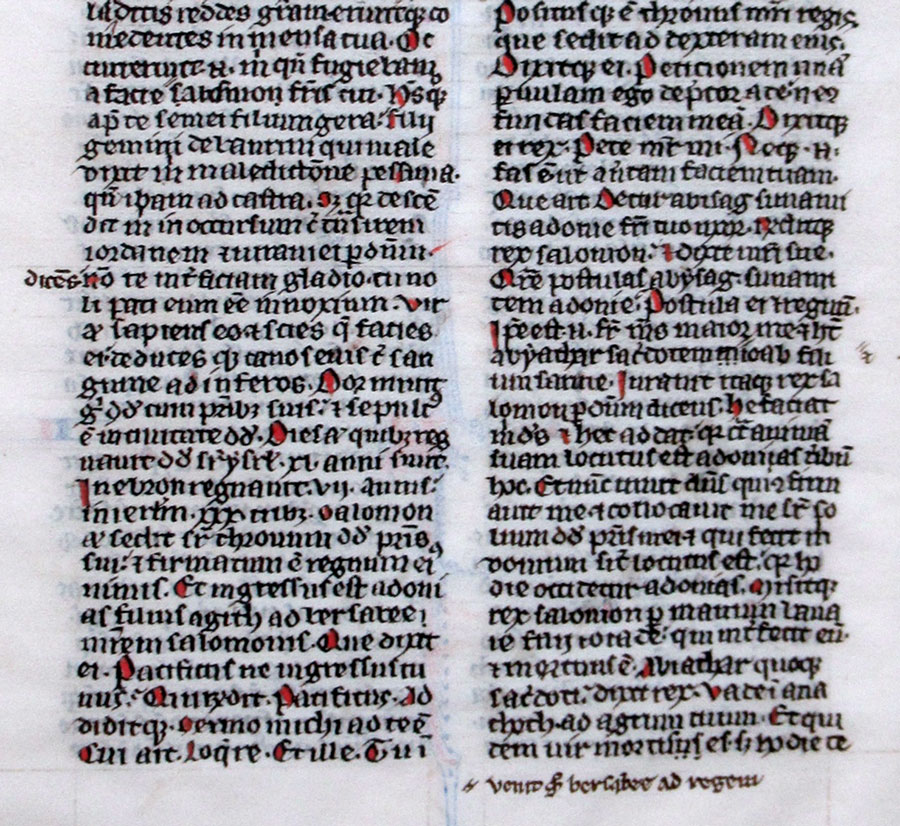 laditis reddes grām· eruntqꝫ co
medentes in mensa tua· Oc
currerunt n̄· m qn̄ fugiebam
a facie absolon fr̄is tui· hēsqꝫ
ap̄ te semei filium gera· filij
gemini de baurim qui male
dixit m maledictōne pessima·
qn̄ ibam ad castra· Sꝫ qꝛ descē
dit m in occursum cū trn̄sirem
iordanem ⁊ iuraui ei p dn̄m·
dicēs· nō te int̄ficiam gladio· tu no
li pati eum eē innoxium· vir
aū sapiens es ⁊ scies q̄ facies
ei· deducesqꝫ canos eius cū san
guine ad inferos· Dormiuit
gͦ dd̄ cum pr̄ibꝫ suis· ⁊ sepult
ē in ciuitate dd̄· Dies aū quibꝫ reg
nauit dd̄ sr̄ ysrl̄· xl· anni sunt·
In ebron regnauit· vij· annis·
in ierlm̄· xxxtribꝫ· Salomon
aū sedit sr̄ thronum dd̄ pr̄is
sui· ⁊ firmatum ē regnum ei
nimis· Et ingressus est adoni
as filius agith ad bersabee
mr̄em salomonis· Que dixit
ei· Pacificus ne ingressus tu
us· Qui rn̄dit· Pacificus· Ad
diditqꝫ· Sermo michi ad te ē
Cui ait· Loqr̄e· Et ille· Tu ī
Positusqꝫ ē thronus mr̄i regis
que sedit ad dexteram eius·
Dixitqꝫ ei· Peticionem unā
puulam ego dep̄cor a te· ne
fundas faciem meā· Dixitqꝫ
ei rex· Pete mr̄ mi· Neqꝫ n̄·
fas ē ut au̇tam faciem tuam·
Que ait· Detur abisag sunami
tis adonie fr̄i tuo uxor· Rn̄ditqꝫ
rex salomon· ⁊ dixit mr̄i sue·
Qr̄e postulas abysag· sunami
tem adonie· Postula ei ⁊ regnū·
Ipē est n̄· fr̄ ms̄ maior me ⁊ ht̄
abyathar sac̄dotem ⁊ ioab fili
um saruie· Iurauit itaqꝫ rex sa
lomon p dn̄m dicens· hec faciat
m ds̄ ⁊ hec addat· qꝛ cͦt̄ animā
suam locutus est adonias ūbū
hoc· Et nūc uiuit dn̄s qui firm
auit me ⁊ collocauit me sr̄ so
lium dd̄ pr̄is mei ⁊ qui fecit m
domum sic̄ locutus est· qꝛ ho
die occidetur adonias· Misitqꝫ
rex salomon p manum bana
ie filij ioiade· qui int̄fecit eū·
⁊ mortuus ē· Abiathar quoqꝫ
sac̄doti· dixit rex· Vade ī ana
thoth· ad agrum tuum· Et qui
dem uir mortis es· sꝫ hodie te
venit gͦ bersabee ad regem